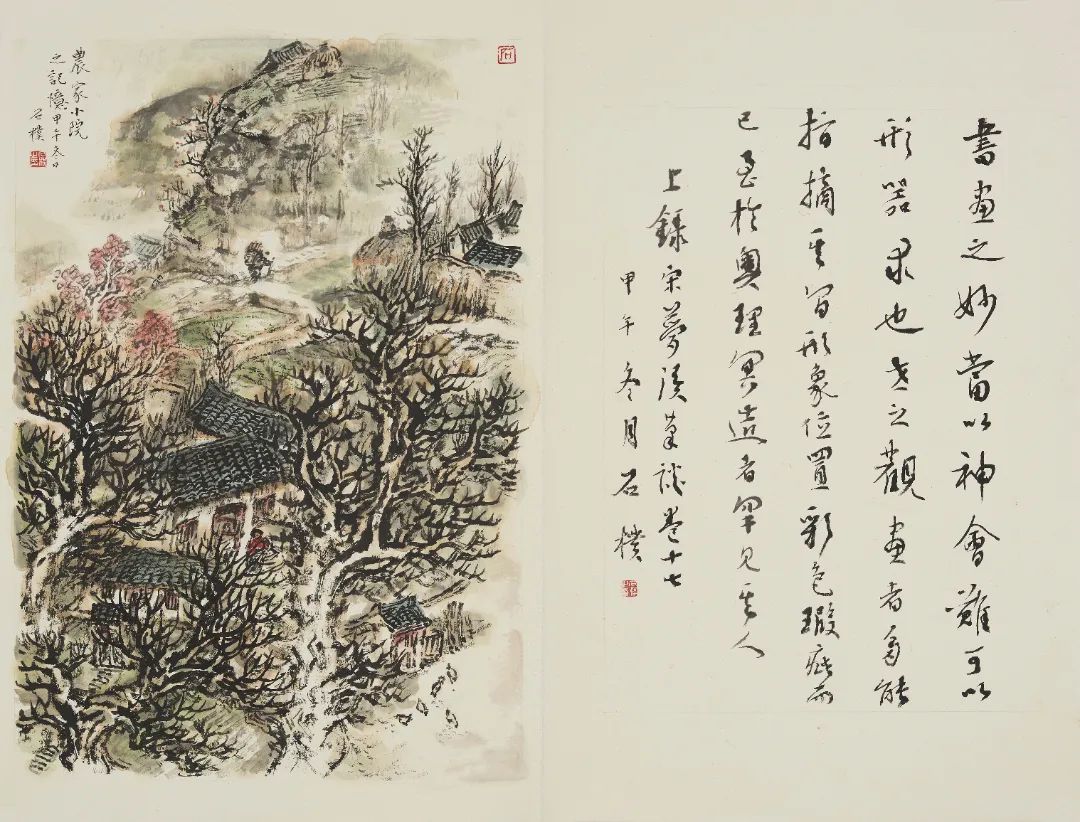 書畫之妙當以神會難可以
形器求也世之觀畫者多能
指摘其間形象位置彩色瑕疵而
已至於奧理冥造者罕見其人
上錄宋夢溪筆談卷十七
甲午冬月石樸
農家小院
之記憶甲午冬日
石樸